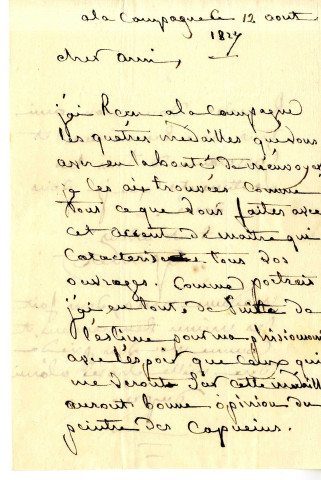 a la Campagne le 12 aout
1827
cher ami,
j'ai Recu a la Campagne
les quatres medailles que vous
avez eu la bonté de m'envoyer
je les ai trouvées Comme
tout ce que vous faites avec
cet accent de maitre qui
Caracterise tous vos
ouvrages. Comme portrait
j'ai eu tout de Suitte de
l'estime pour ma phisionomie
avec l'espoir que Ceux qui
me verront Sur cette medaille
auront bonne opinion du
peintre des Capucins.